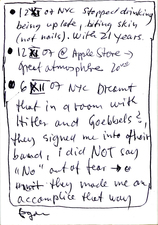 • 12 XI 07 NYC Stopped drinking
being up late, biting skin
(not nails). With 21 years.
• 12 XI 07 @ Apple Store →
great atmosphere
• 6 XII 07 NYC Dreamt
that in a room with
Hitler and Goebbels,
they signed me into their
band, i did NOT say
"No" out of fear →
they made me an
accomplice that way